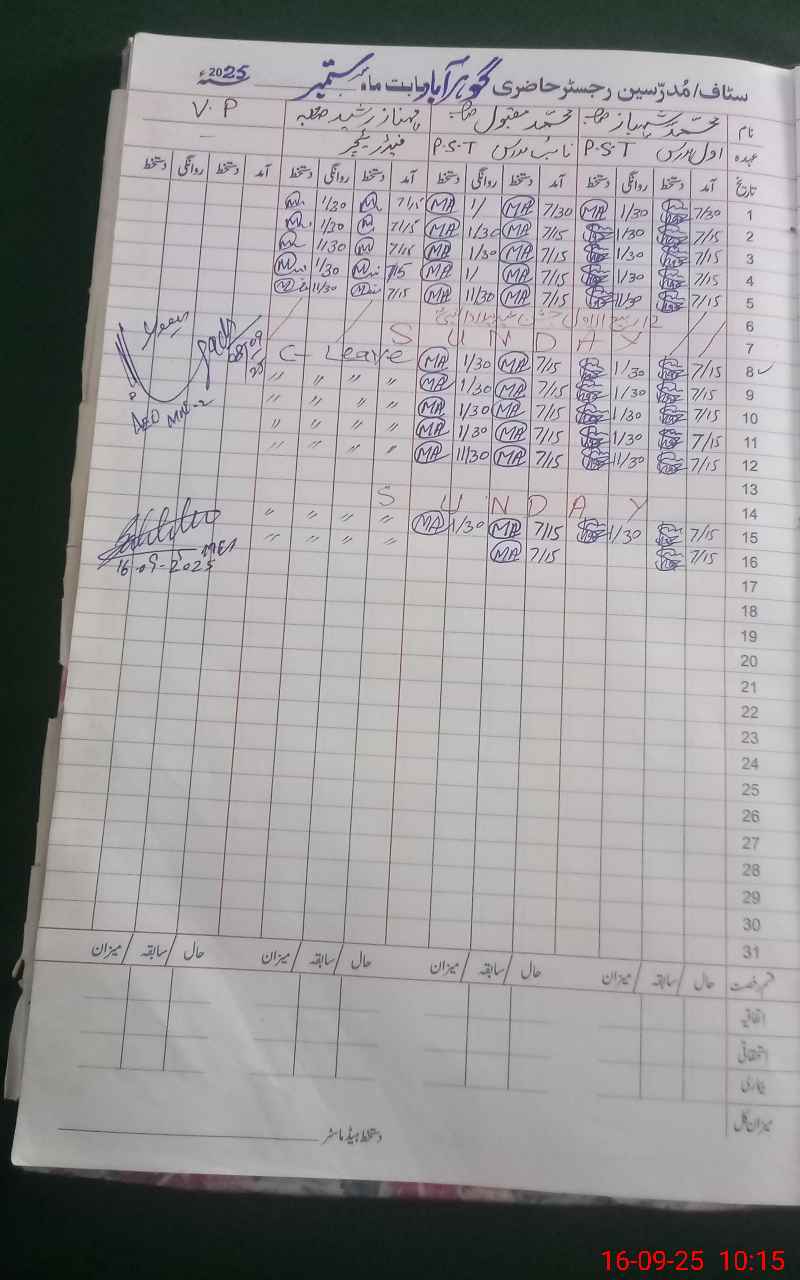 سٹاف/مُدرّسین رجسٹر حاضری گوہر آباد بابت ماہ ستمبر 2025ء
نام محمد شہباز محمد مقبول مہناز رشید V.P
عہدہ اول مدرس P.S.T نائب مدرس P.S.T
تاریخ آمد دستخط روانگی دستخط آمد دستخط روانگی دستخط آمد دستخط روانگی دستخط آمد دستخط روانگی دستخط
1 7/30 1/30 MA 7/30 MA 1/ MA 7/15 1/30
2 7/15 1/30 7/15 MA 1/30 MA 7/15 1/30
3 7/15 1/30 7/15 MA 1/30 MA 7/15 11/30
4 7/15 1/30 7/15 MA 1/ MA 7/15 1/30
5 7/15 11/30 7/15 MA 11/30 MA 7/15 11/30
6 12 ربیع الاول
7 SUNDAY
8 7/15 1/30 7/15 MA 1/30 MA C-Leave
9 7/15 1/30 7/15 MA 1/30 MA " " " "
10 7/15 1/30 7/15 MA 1/30 MA " " " "
11 7/15 1/30 7/15 MA 1/30 MA " " " "
12 7/15 11/30 7/15 MA 11/30 MA " " " "
13
14 SUNDAY
15 7/15 1/30 7/15 MA 1/30 MA " " " "
16 7/15 7/15 MA " " " "
17
18
19
20
21
22
23
24
25
26
27
28
29
30
31
AEO
16-09-2025
قسم رخصت حال / سابقہ / میزان حال / سابقہ / میزان حال / سابقہ / میزان حال / سابقہ / میزان
اتفاقیہ
استحقاقی
بیماری
میزان کل
دستخط ہیڈ ماسٹر
16-09-25 10:15